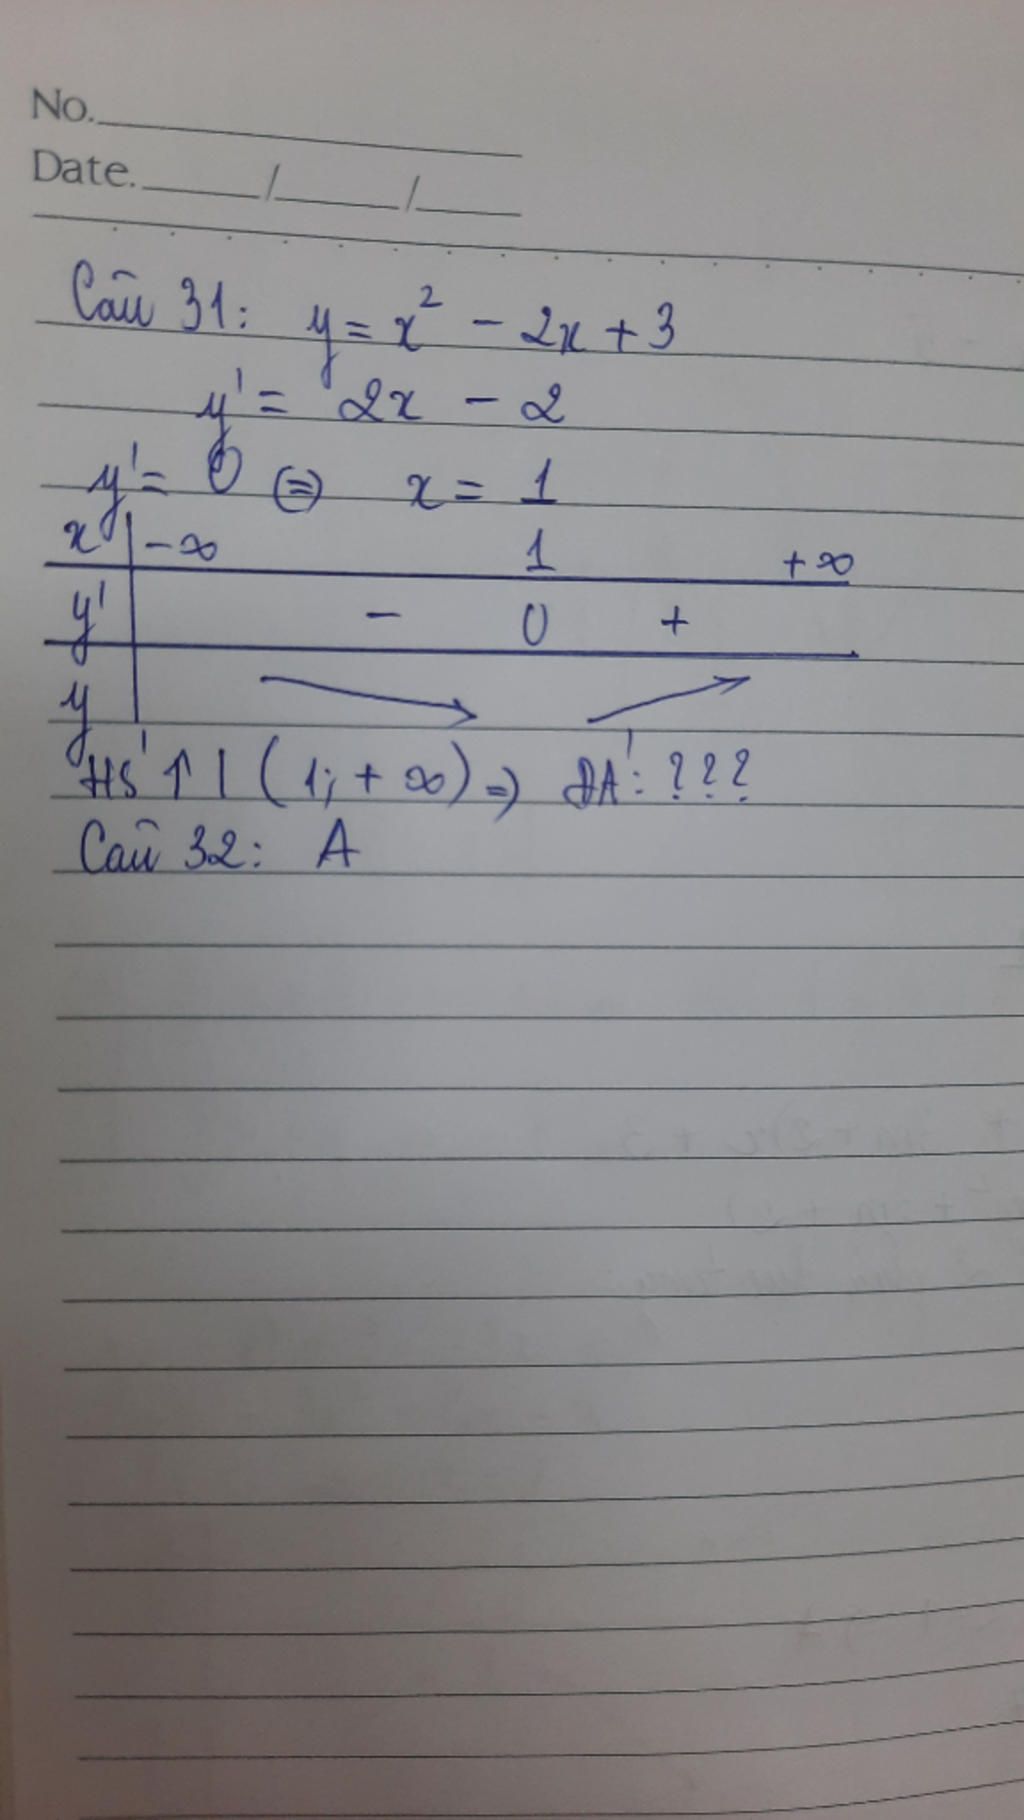 No.
Date. / /
Câu 31: y = x² - 2x + 3
y' = 2x - 2
y' = 0 ⇔ x = 1
x -∞ 1 +∞
y' - 0 +
y
HS ↑ | (1; +∞) => ĐA: ???
Câu 32: A